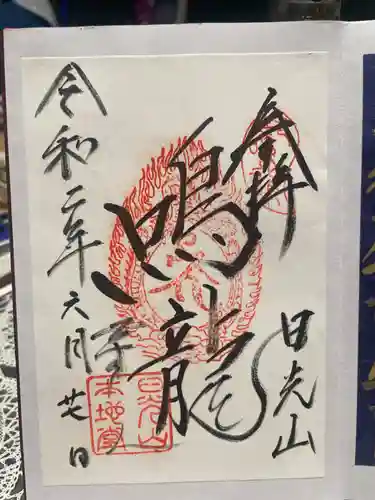 奉拝
日光山
鳴龍
令和二年六月廿日
日光山
本地堂